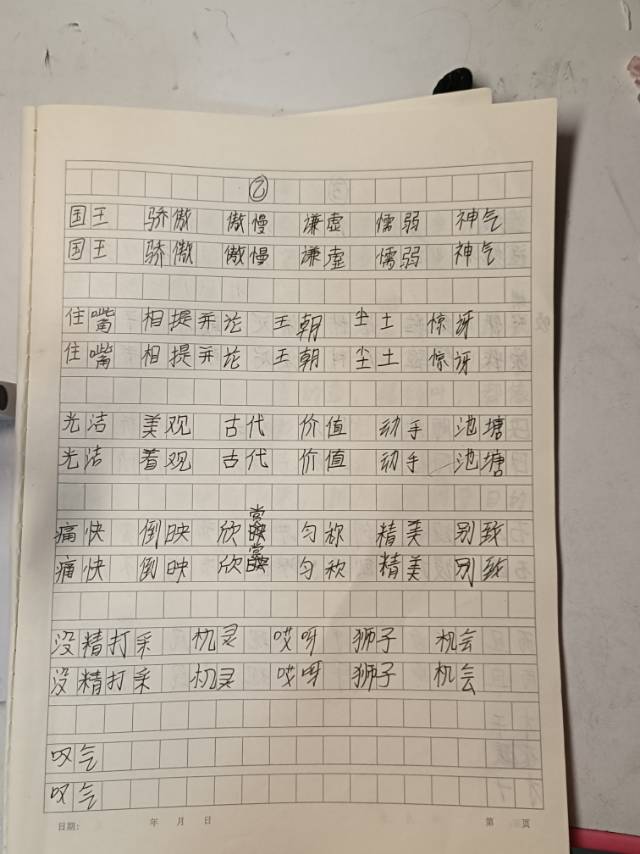 ②
国王 骄傲 傲慢 谦虚 懦弱 神气
国王 骄傲 傲慢 谦虚 懦弱 神气
住嘴 相提并论 王朝 尘土 惊讶
住嘴 相提并论 王朝 尘土 惊讶
光洁 美观 古代 价值 动手 池塘
光洁 着观 古代 价值 动手 池塘
痛快 倒映 欣赏 匀称 精美 别致
痛快 倒映 欣赏 匀称 精美 别致
没精打采 机灵 哎呀 狮子 机会
没精打采 机灵 哎呀 狮子 机会
叹气
叹气
日期: 年 月 日 第 页